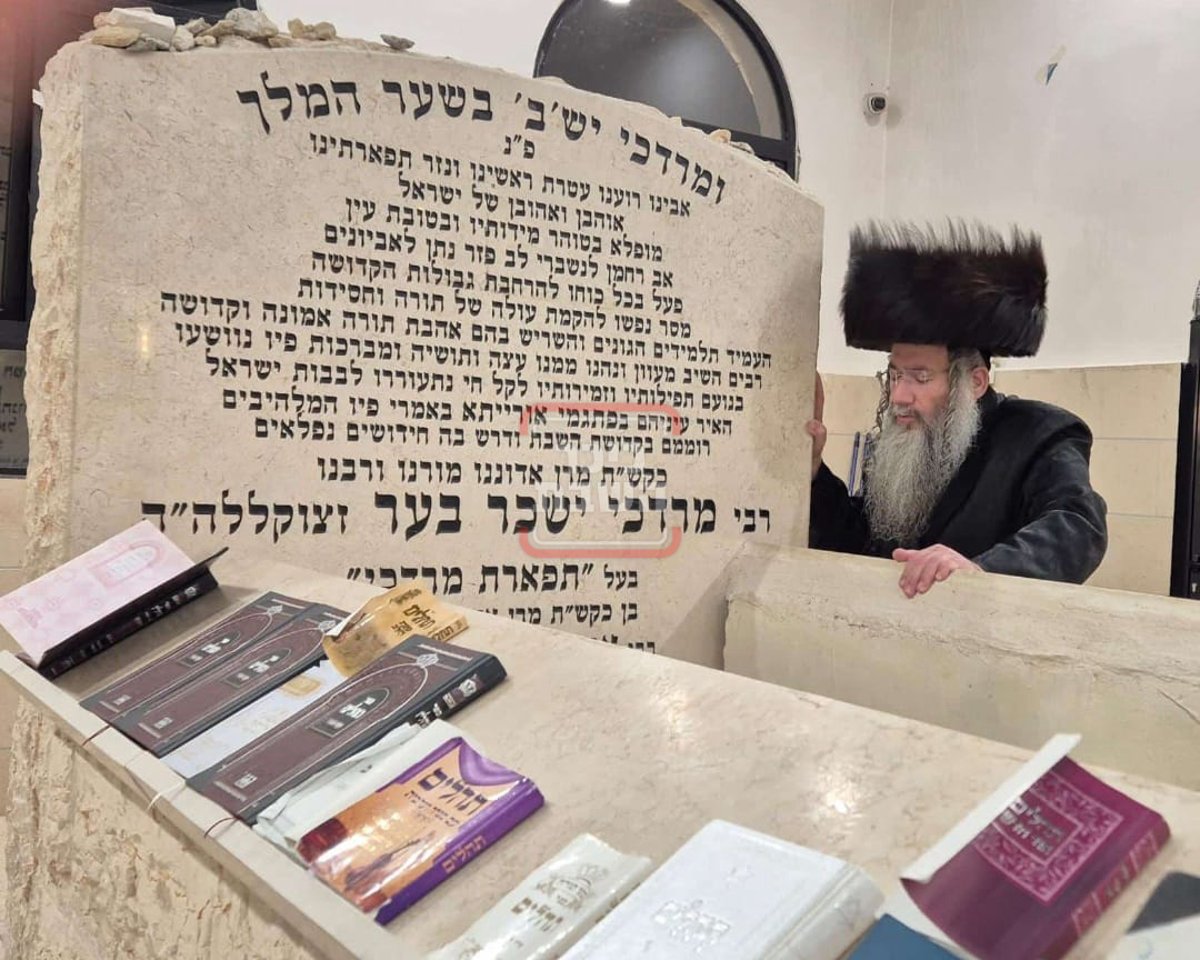 ומרדכי יש'ב' בשער המלך
פ"נ
אבינו רוענו עטרת ראשינו ונזר תפארתינו
אוהבן ואהובן של ישראל
מופלא בטוהר מידותיו ובטובת עין
אב רחמן לנשברי לב פזר נתן לאביונים
פעל בכל כוחו להרחבת גבולות הקדושה
מסר נפשו להקמת עולה של תורה וחסידות
העמיד תלמידים הגונים והשריש בהם אהבת תורה אמונה וקדושה
רבים השיב מעוון ונהנו ממנו עצה ותושיה ומברכות פיו נוושעו
בנועם תפילותיו וזמירותיו לקל חי נתעוררו לבבות ישראל
האיר עיניהם בפתגמי אורייתא באמרי פיו המלהיבים
רוממם בקדושת השבת ודרש בה חידושים נפלאים
בקש"ת מרן אדוננו מורנו ורבנו
רבי מרדכי ישכר בער זצוקללה"ה
בעל "תפארת מרדכי"
בן כקש"ת מרן
תהלים
תהלים
תהלים
תהלים